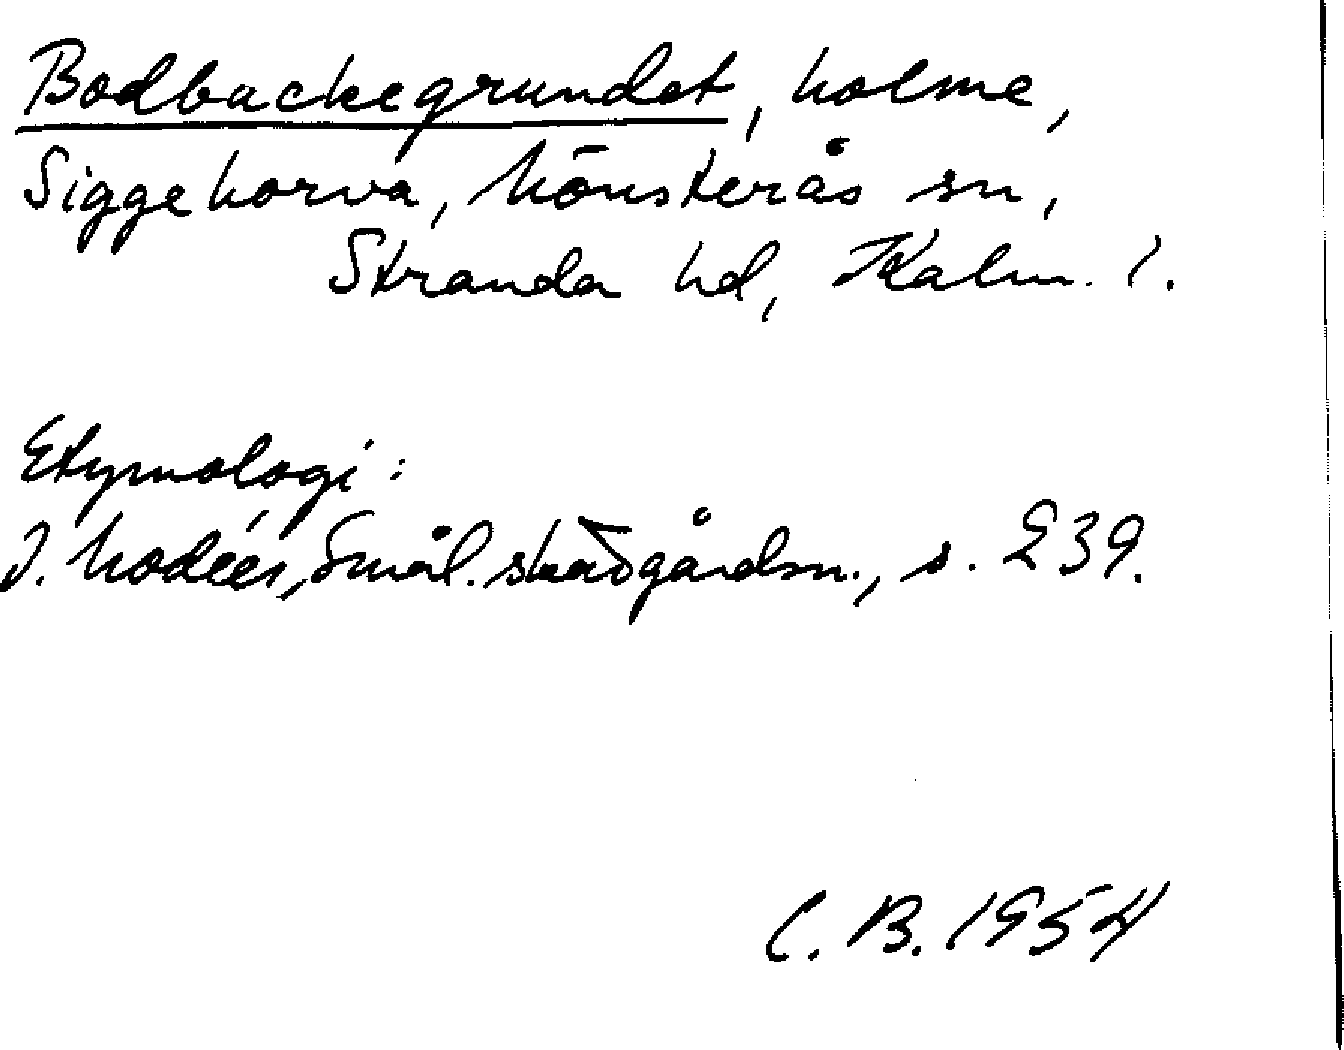 Bodbackegrundet, holme,
Siggehorva, Mönsterås sn,
Stranda hd, Kalm. l.
Etymologi:
I. Modéer, Smål. skärgårdsn., s. 239.
C. B. 1954